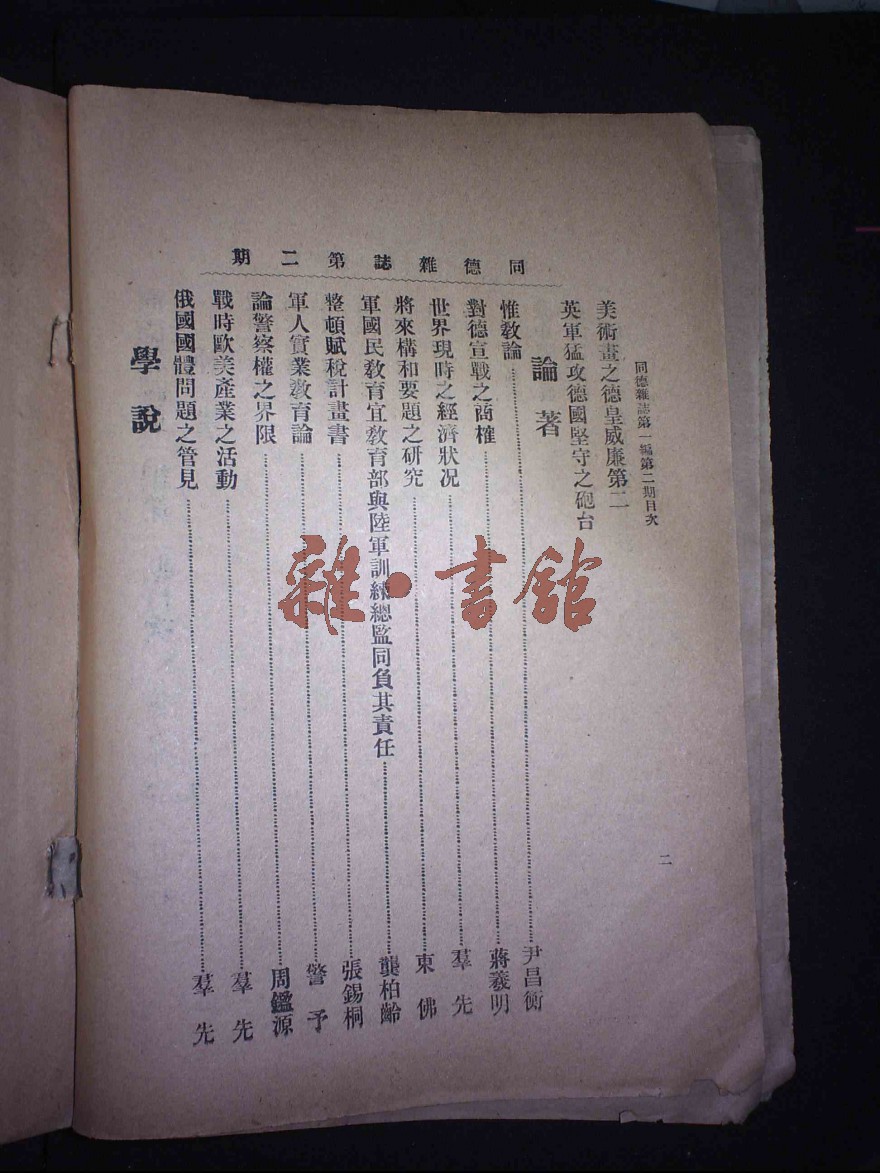 同德雜誌第一編第二期目次
二
美術畫之德皇威廉第二
英軍猛攻德國堅守之砲台
同德雜誌第二期
論著
惟教論 尹昌衡
對德宣戰之商榷 蔣羲明
世界現時之經濟狀况 羣先
將來構和要題之研究 東佛
軍國民敎育宜敎育部與陸軍訓練總監同負其責任 龔柏齡
整頓賦稅計畫書 張錫桐
軍人實業敎育論 警予
論警察權之界限 周鑑源
戰時歐美產業之活動 羣先
俄國國體問題之管見 羣先
學說
雜·書館